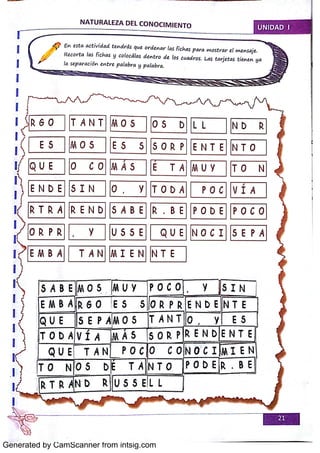 NATURALEZA DEL CONOCIMIENTO
UNIDAD I
En esta actividad tendrás que ordenar las fichas para mostrar el mensaje.
Recorta las fichas y colocálas dentro de los cuadros. Las tarjetas tienen ya
la separación entre palabra y palabra.
RGO TANT MOS OS D LL ND R
ES MOS ES S SORP ENTE NTO
QUE O CO MÁS É TA MUY TO N
ENDE SIN O, Y TODA POC VÍA
RTRA REND SABE R.BE PODE POCO
ORPR , Y USSE QUE NOCI SEPA
EMBA TAN MIEN NTE
SABE MOS MUY POCO , Y SIN
EMBA RGO ES S ORPR ENDE NTE
QUE SEPA MOS TANT O, Y ES
TODA VÍA MÁS SORP REND ENTE
QUE TAN POC O CO NOCI MIEN
TO N OS D É TA NTO PODE R.BE
RTRA ND R USSE LL
21
Generated by CamScanner from intsig.com